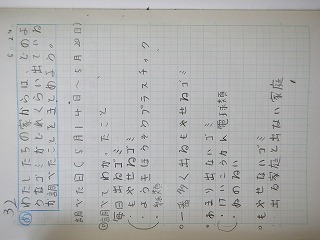 6.24
32
め わたしたちの家からは、どのよ
うなゴミがどれくらい出ているか
調べたことをまとめよう。
調べた日(5月14日〜5月20日)
調べてわかったこと
毎日出るゴミ
・もやせるゴミ
・ようきほうそうプラスチック
・紙類
○一番多く出るもやせるゴミ
○あまり出ないゴミ
・けいこうかん電球類
・ぬのるい
○もやせないゴミ
出る家庭と出ない家庭